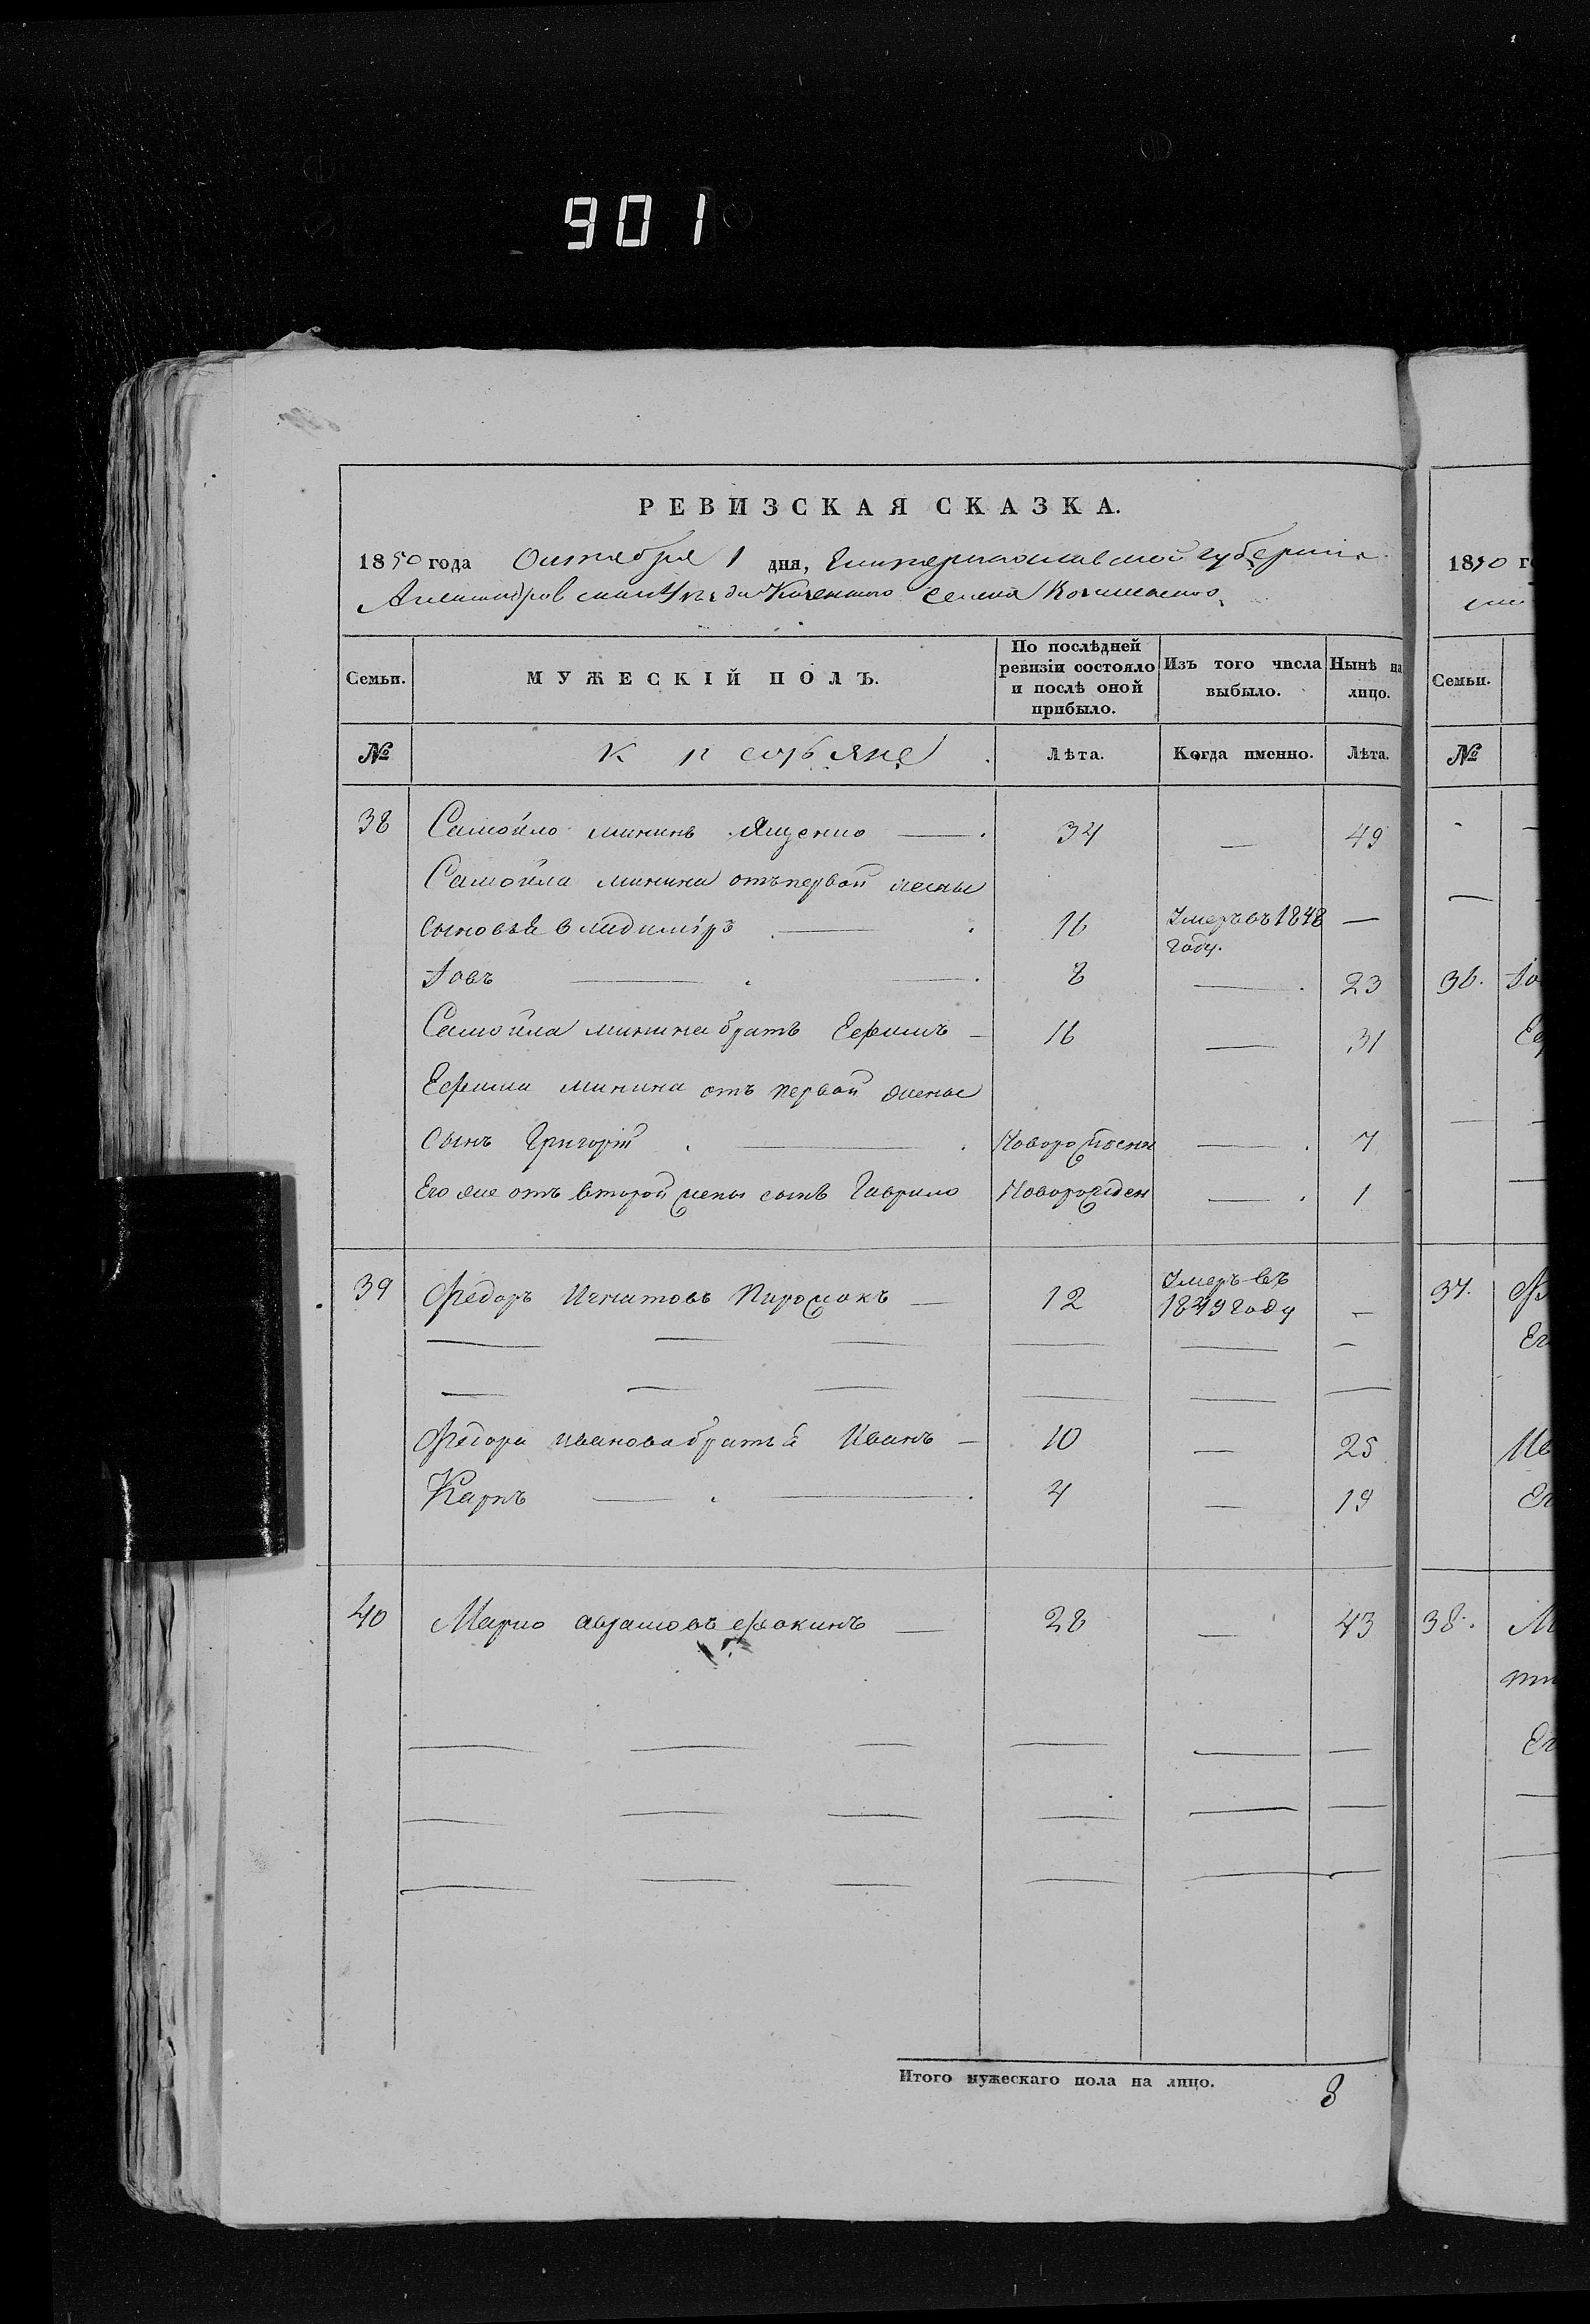 901
РЕВИЗСКАЯ СКАЗКА.
1850 года Октября 1 дня, Екатеринославской губернии
Александровскаго уезда Казеннаго селения
Семьи.
МУЖЕСКІЙ ПОЛЪ.
По послѣдней ревизіи состояло и послѣ оной прибыло.
Изъ того числа выбыло.
Нынѣ на лицо.
№
Лѣта.
Когда именно.
Лѣта.
38 Самойло Мининъ Ященко — 34 — 49
Самойла Минина отъ первой жены
сыновья Владиміръ — 16 Умеръ въ 1848 году. —
Іовъ — 8 — 23
Самойла Минина братъ Ефимъ — 16 — 31
Ефима Минина отъ первой жены
сынъ Григорій — Новорожден — 7
Его же отъ второй жены сынъ Гаврило Новорожден — 1
39 Федоръ Игнатовъ — 12 Умеръ въ 1849 году —
Федора Иванова братья Иванъ — 10 — 25
Карпъ — 4 — 19
40 Марко Аврамовъ Фокинъ — 28 — 43
Итого мужескаго пола на лицо. 8
1850 го
Семьи.
№
36. Іо
Еф
37.
Ег
Ив
Ег
38. М
Ег